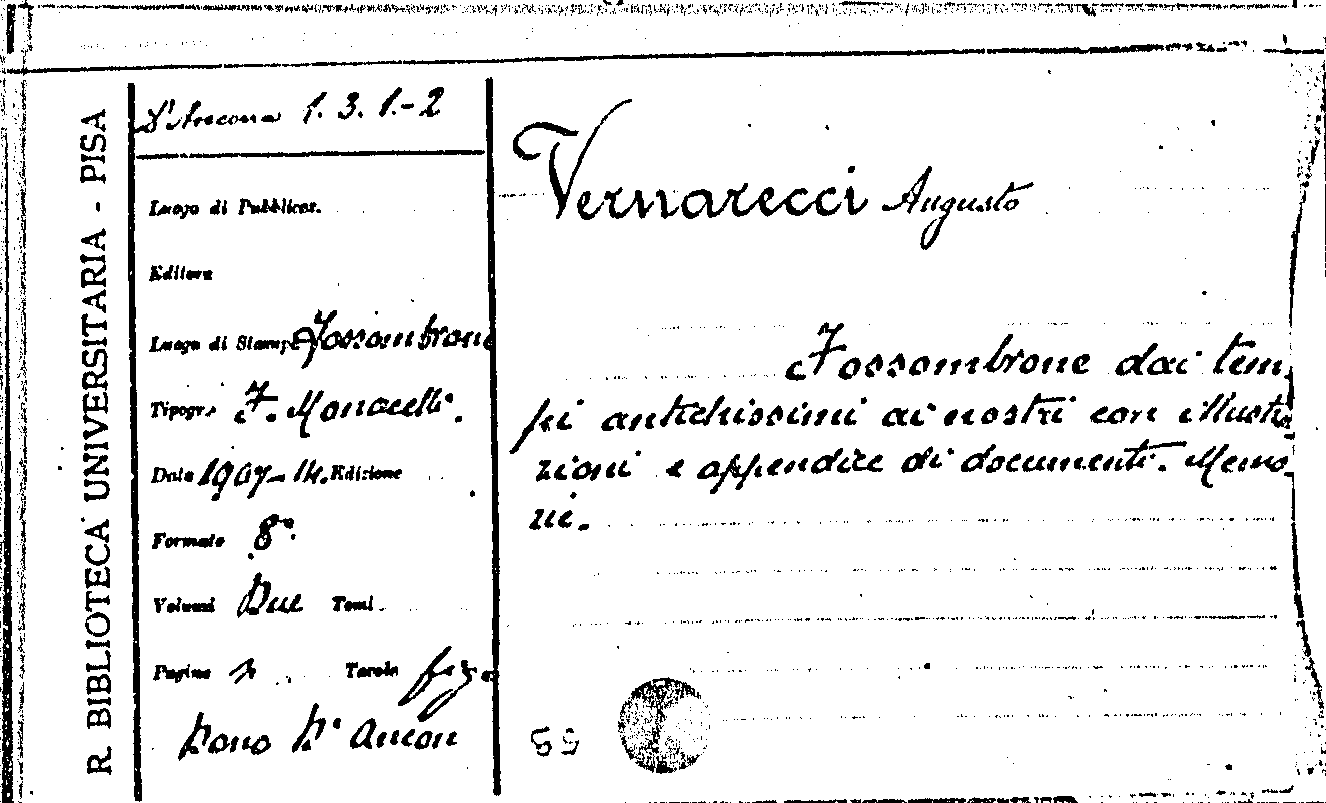 R. BIBLIOTECA UNIVERSITARIA - PISA
D'Ancona 1. 3. 1.-2
Luogo di Pubblicaz.
Editore
Luogo di Stampa Fossombrone
Tipogr. F. Monacelli.
Data 1907-14. Edizione
Formato 8°
Volumi Due Tomi
Pagine Tavole fig.
Dono D'Ancon
Vernarecci Augusto
Fossombrone dai tem-
pi antichissimi ai nostri con illustra-
zioni e appendice di documenti. Memo-
rie.